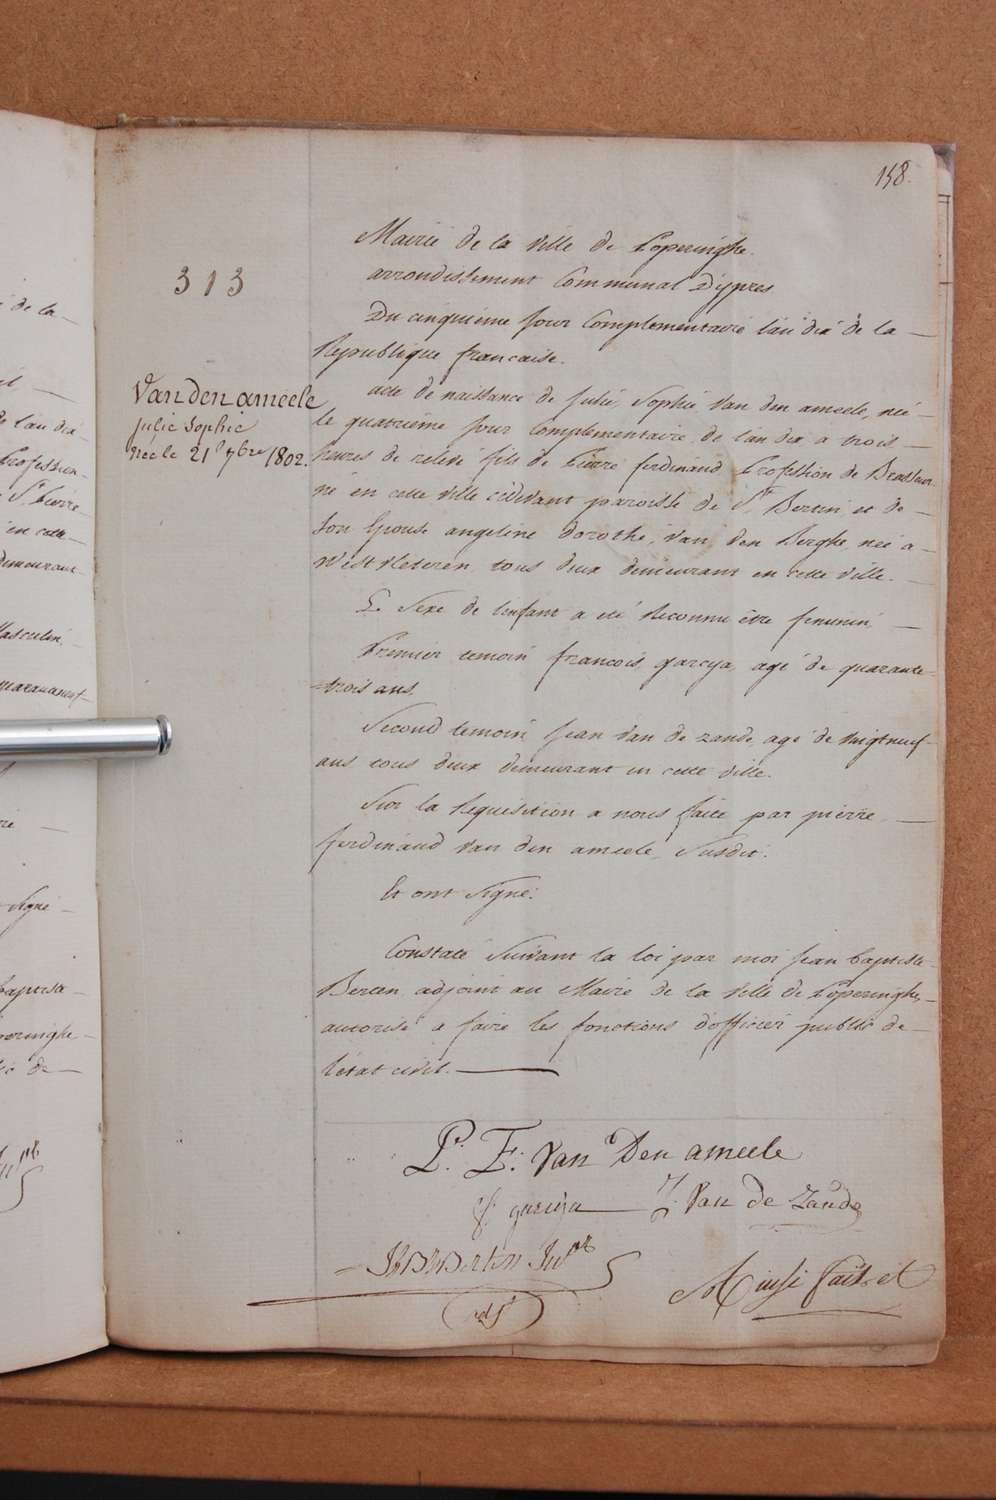 158.
313
Mairie de la ville de Poperinghe.
arrondissement Communal D'ypres
Du cinquieme jour Complementaire l'an dix de la —
Republique francaise.
Van den ameele
julie Sophie
née le 21 7bre 1802.
acte de naissance de Julie Sophie Van den ameele, née —
le quatrieme jour Complementaire de l'an dix a trois —
heures de relevé fils de Pierre ferdinand Profession de Brasseur
né en cette ville cidevant paroisse de St. Bertin et de —
Son Epouse angeline dorothé Van den Berghe née a —
West Vleteren, tous deux demeurant en cette ville. —
Le Sexe de l'enfant a eté Reconnu être feminin —
Premier temoin francois garcya agé de quarante-
=trois ans.
Second temoin jean Van de zande agé de vingtneuf-
ans tous deux demeurant en cette ville.
Sur la Requisition a nous faite par pierre —
ferdinand Van den ameele, Susdit.
Et ont Signé:
Constaté Suivant la loi par moi jean baptiste
Berten adjoint au Maire de la ville de Poperinghe, —
autorisé a faire les fonctions d'officier public de —
l'état civil. —
P. F. Van Den ameele
f: garcija J. Van de Zande
de la —
l'an dix-
Profession-
St. Pierre-
en cette-
demeurant
Masculin.
Signé —
baptista-
Poperinghe-
de —